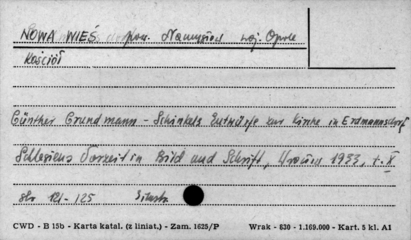 NOWA WIEŚ, pow. Namysłów woj. Opole
Kościół
Günther Grundmann - Schinkels Entwürfe zur Kirche in Erdmannsdorf
Schlesiens Vorzeit in Bild und Schrift, 1933, t. X
str 121-125
CWD - B 15b - Karta katal. (z liniat.) - Zam. 1625/P Wrak - 630 - 1.169.000 - Kart. 5 kl. A1